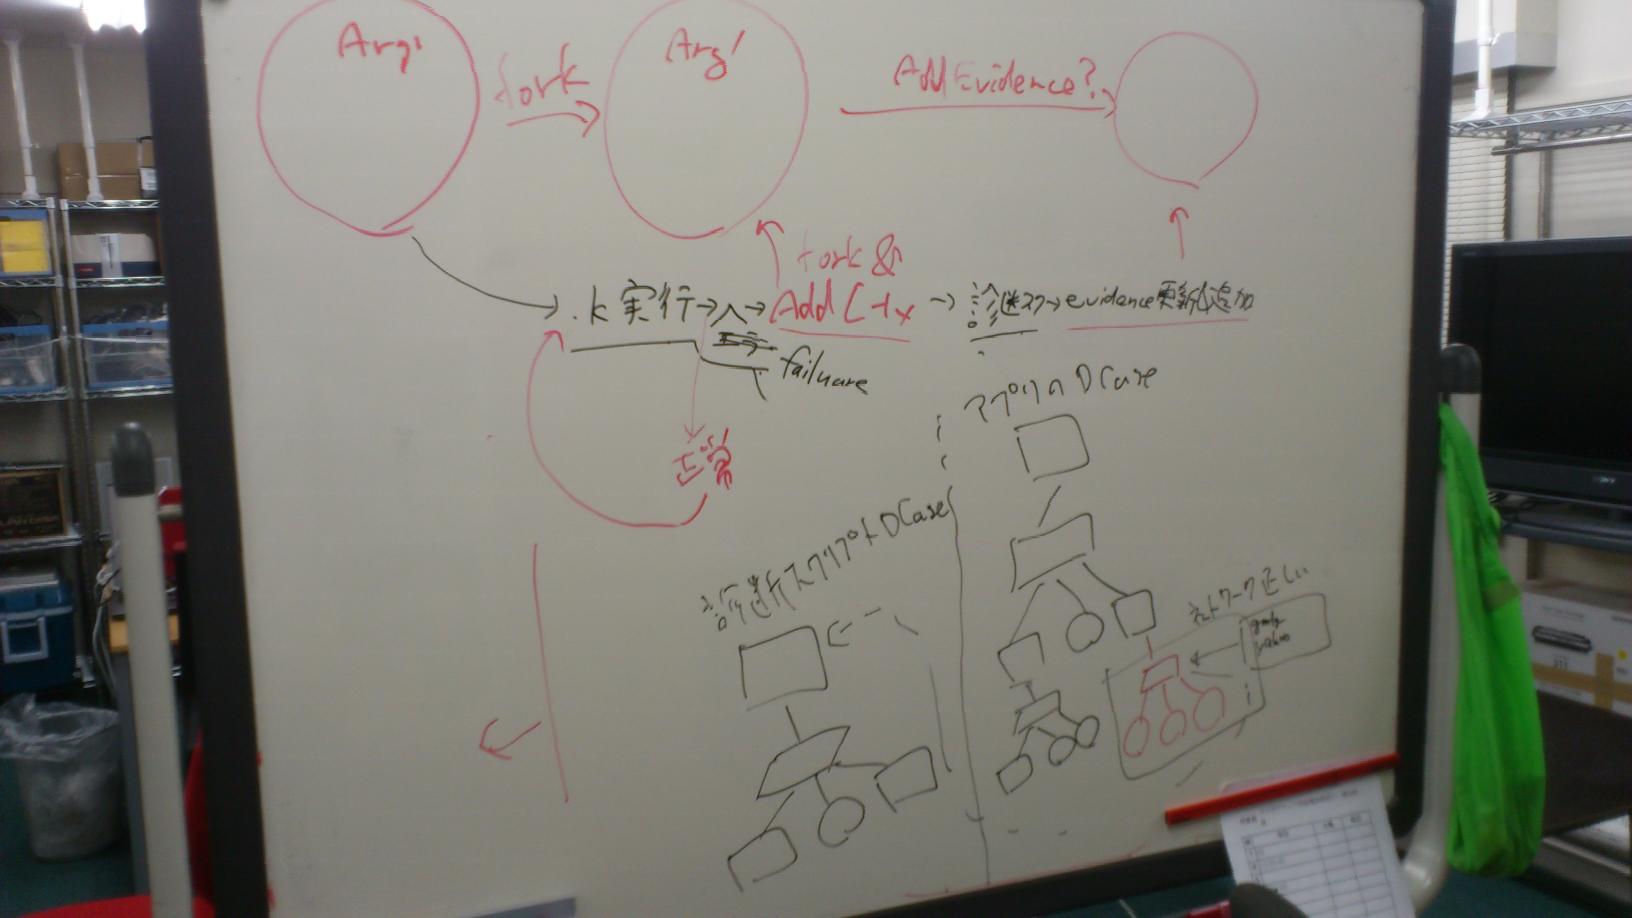 Arg
fork
Arg'
Add Evidence?
fork &
.k 実行→ → Add Ctx → 診断スク→ evidence更新&追加
異常
failuare
正常
アプリの DCase
診断スクリプト DCase
ネットワーク正しい
SONY